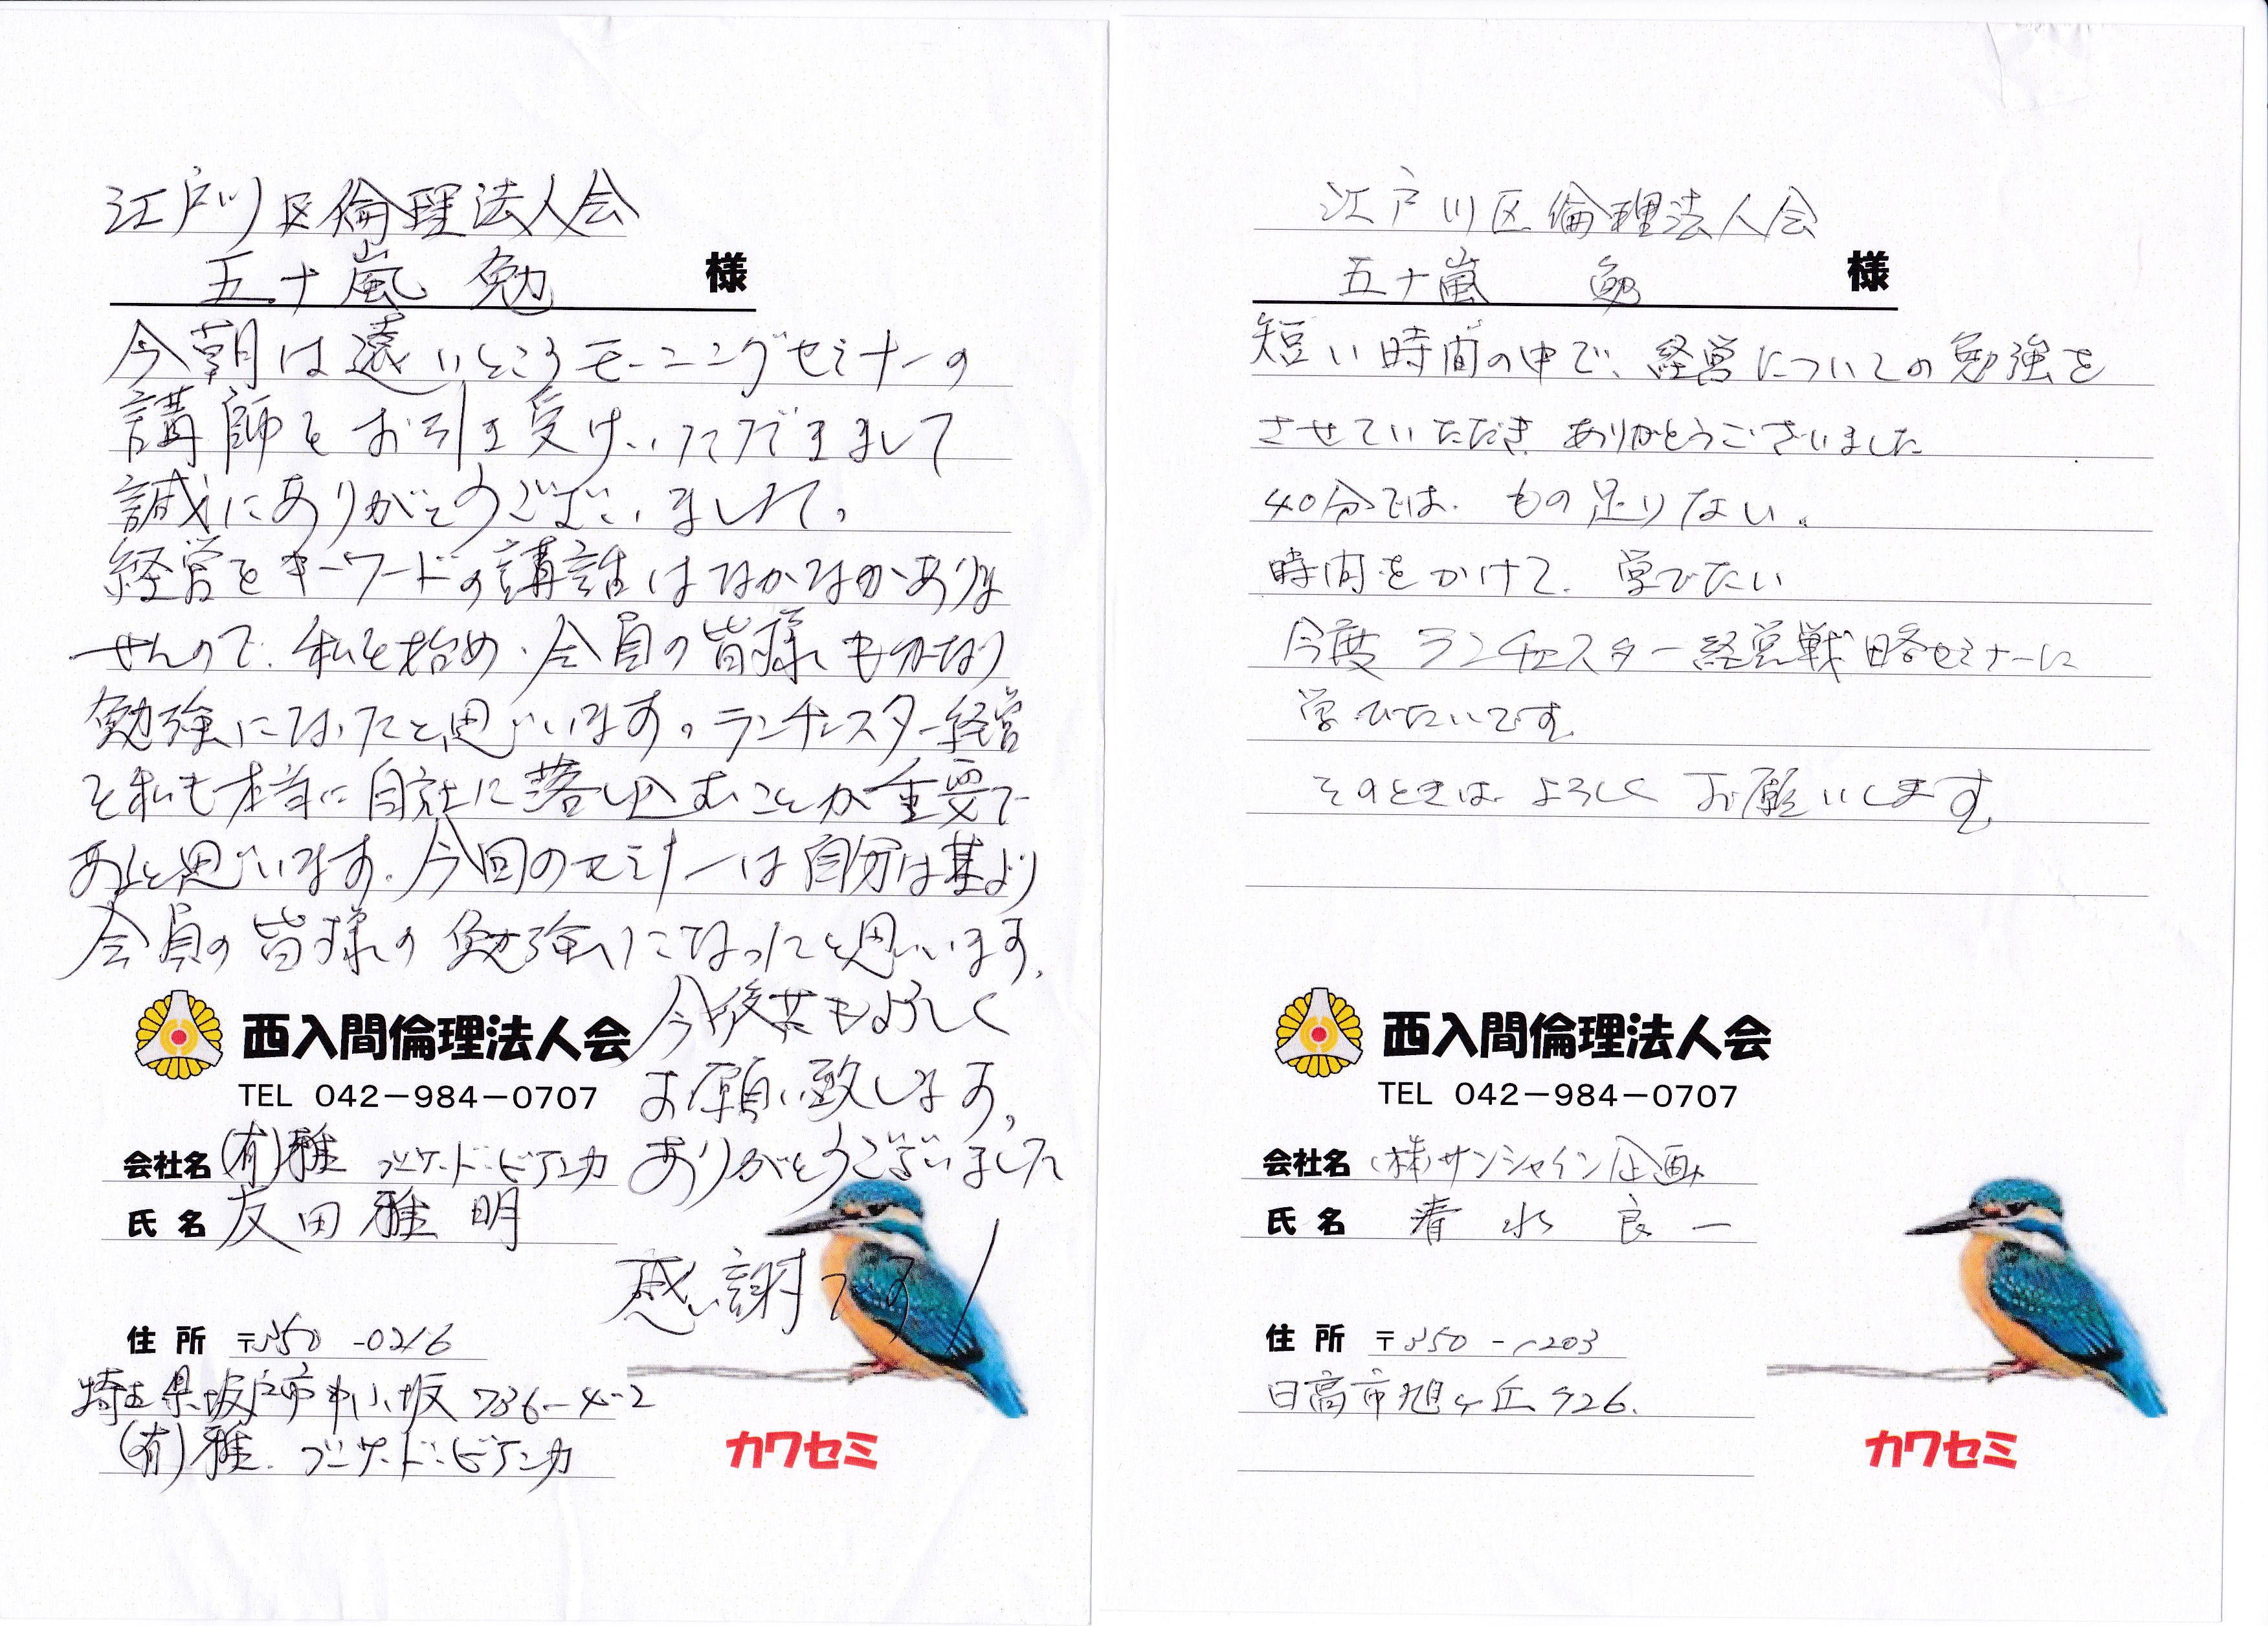 江戸川区倫理法人会
五十嵐 勉 様
今朝は遠いところモーニングセミナーの
講師をお引き受けいただきまして
誠にありがとうございました。
経営をキーワードの講話はなかなかありま
せんので、私を始め、会員の皆様もかなり
勉強になったと思います。ランチェスター経営
を私も本当に自社に落し込むことが重要で
あると思います。今回のセミナーは自分は基より
会員の皆様の勉強になったと思います。
今後共もよろしく
お願い致します。
ありがとうございました
感謝です!
西入間倫理法人会
TEL 042-984-0707
会社名 (有)雅 ブーケ・ド・ビアンカ
氏名 友田雅明
住所 〒350-0216
埼玉県坂戸市中小坂 736-4-2
(有)雅 ブーケ・ド・ビアンカ
カワセミ
江戸川区倫理法人会
五十嵐 勉 様
短い時間の中で、経営についての勉強を
させていただき ありがとうございました
40分では、もの足りない。
時間をかけて、学びたい
今度 ランチェスター経営戦略セミナーに
学びたいです。
そのときは、よろしく お願いします
西入間倫理法人会
TEL 042-984-0707
会社名 (株)サンシャイン企画
氏名 清水良一
住所 〒350-1203
日高市旭ヶ丘926.
カワセミ